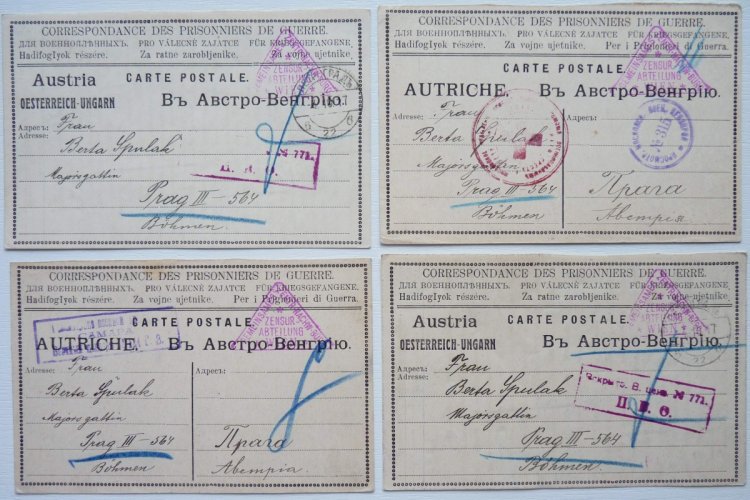 CORRESPONDANCE DES PRISONNIERS DE GUERRE.
ДЛЯ ВОЕННОПЛѢННЫХЪ. PRO VÁLEČNÉ ZAJATCE FÜR KRIEGSGEFANGENE.
HadifogIyok részére. Za ratne zarobljenike. Za vojne ujetnike.
ZENSUR
ABTEILUNG
WIEN
CARTE POSTALE.
Austria
OESTERREICH-UNGARN
Въ Австро-Венгрію.
Адресъ: Frau
Berta Spulak
Majorsgattin
№ 771.
Prag III - 564
Böhmen
CORRESPONDANCE DES PRISONNIERS DE GUERRE.
ДЛЯ ВОЕННОПЛѢННЫХЪ. PRO VÁLEČNÉ ZAJATCE FÜR KRIEGSGEFANGENE.
HadifogIyok részére. Za vojne ujetnike. Per i Prigionieri di Guerra.
ZENSUR
ABTEILUNG
WIEN
CARTE POSTALE.
AUTRICHE.
Въ Австро-Венгрію.
Адресъ: Frau
Berta Spulak
Majorsgattin
№ 315
Prag III - 564
Böhmen
Прага
Австрія
CORRESPONDANCE DES PRISONNIERS DE GUERRE.
ДЛЯ ВОЕННОПЛѢННЫХЪ. PRO VÁLEČNÉ ZAJATCE FÜR KRIEGSGEFANGENE.
HadifogIyok részére. Za vojne ujetnike. Per i Prigionieri di Guerra.
ZENSUR
ABTEILUNG
CARTE POSTALE.
AUTRICHE.
Въ Австро-Венгрію.
Adresse: Frau
Berta Spulak
Majorsgattin
Prag III - 564
Böhmen
Прага
Австрія.
CORRESPONDANCE DES PRISONNIERS DE GUERRE.
ДЛЯ ВОЕННОПЛѢННЫХЪ. PRO VÁLEČNÉ ZAJATCE FÜR KRIEGSGEFANGENE.
HadifogIyok részére. Za ratne zarobljenike. Za vojne ujetnike.
ZENSUR
ABTEILUNG
WIEN
CARTE POSTALE.
Austria
OESTERREICH-UNGARN
Въ Австро-Венгрію.
Адресъ: Frau
Berta Spulak
Majorsgattin
№ 771.
П. В. Ө.
Prag III - 564
Böhmen